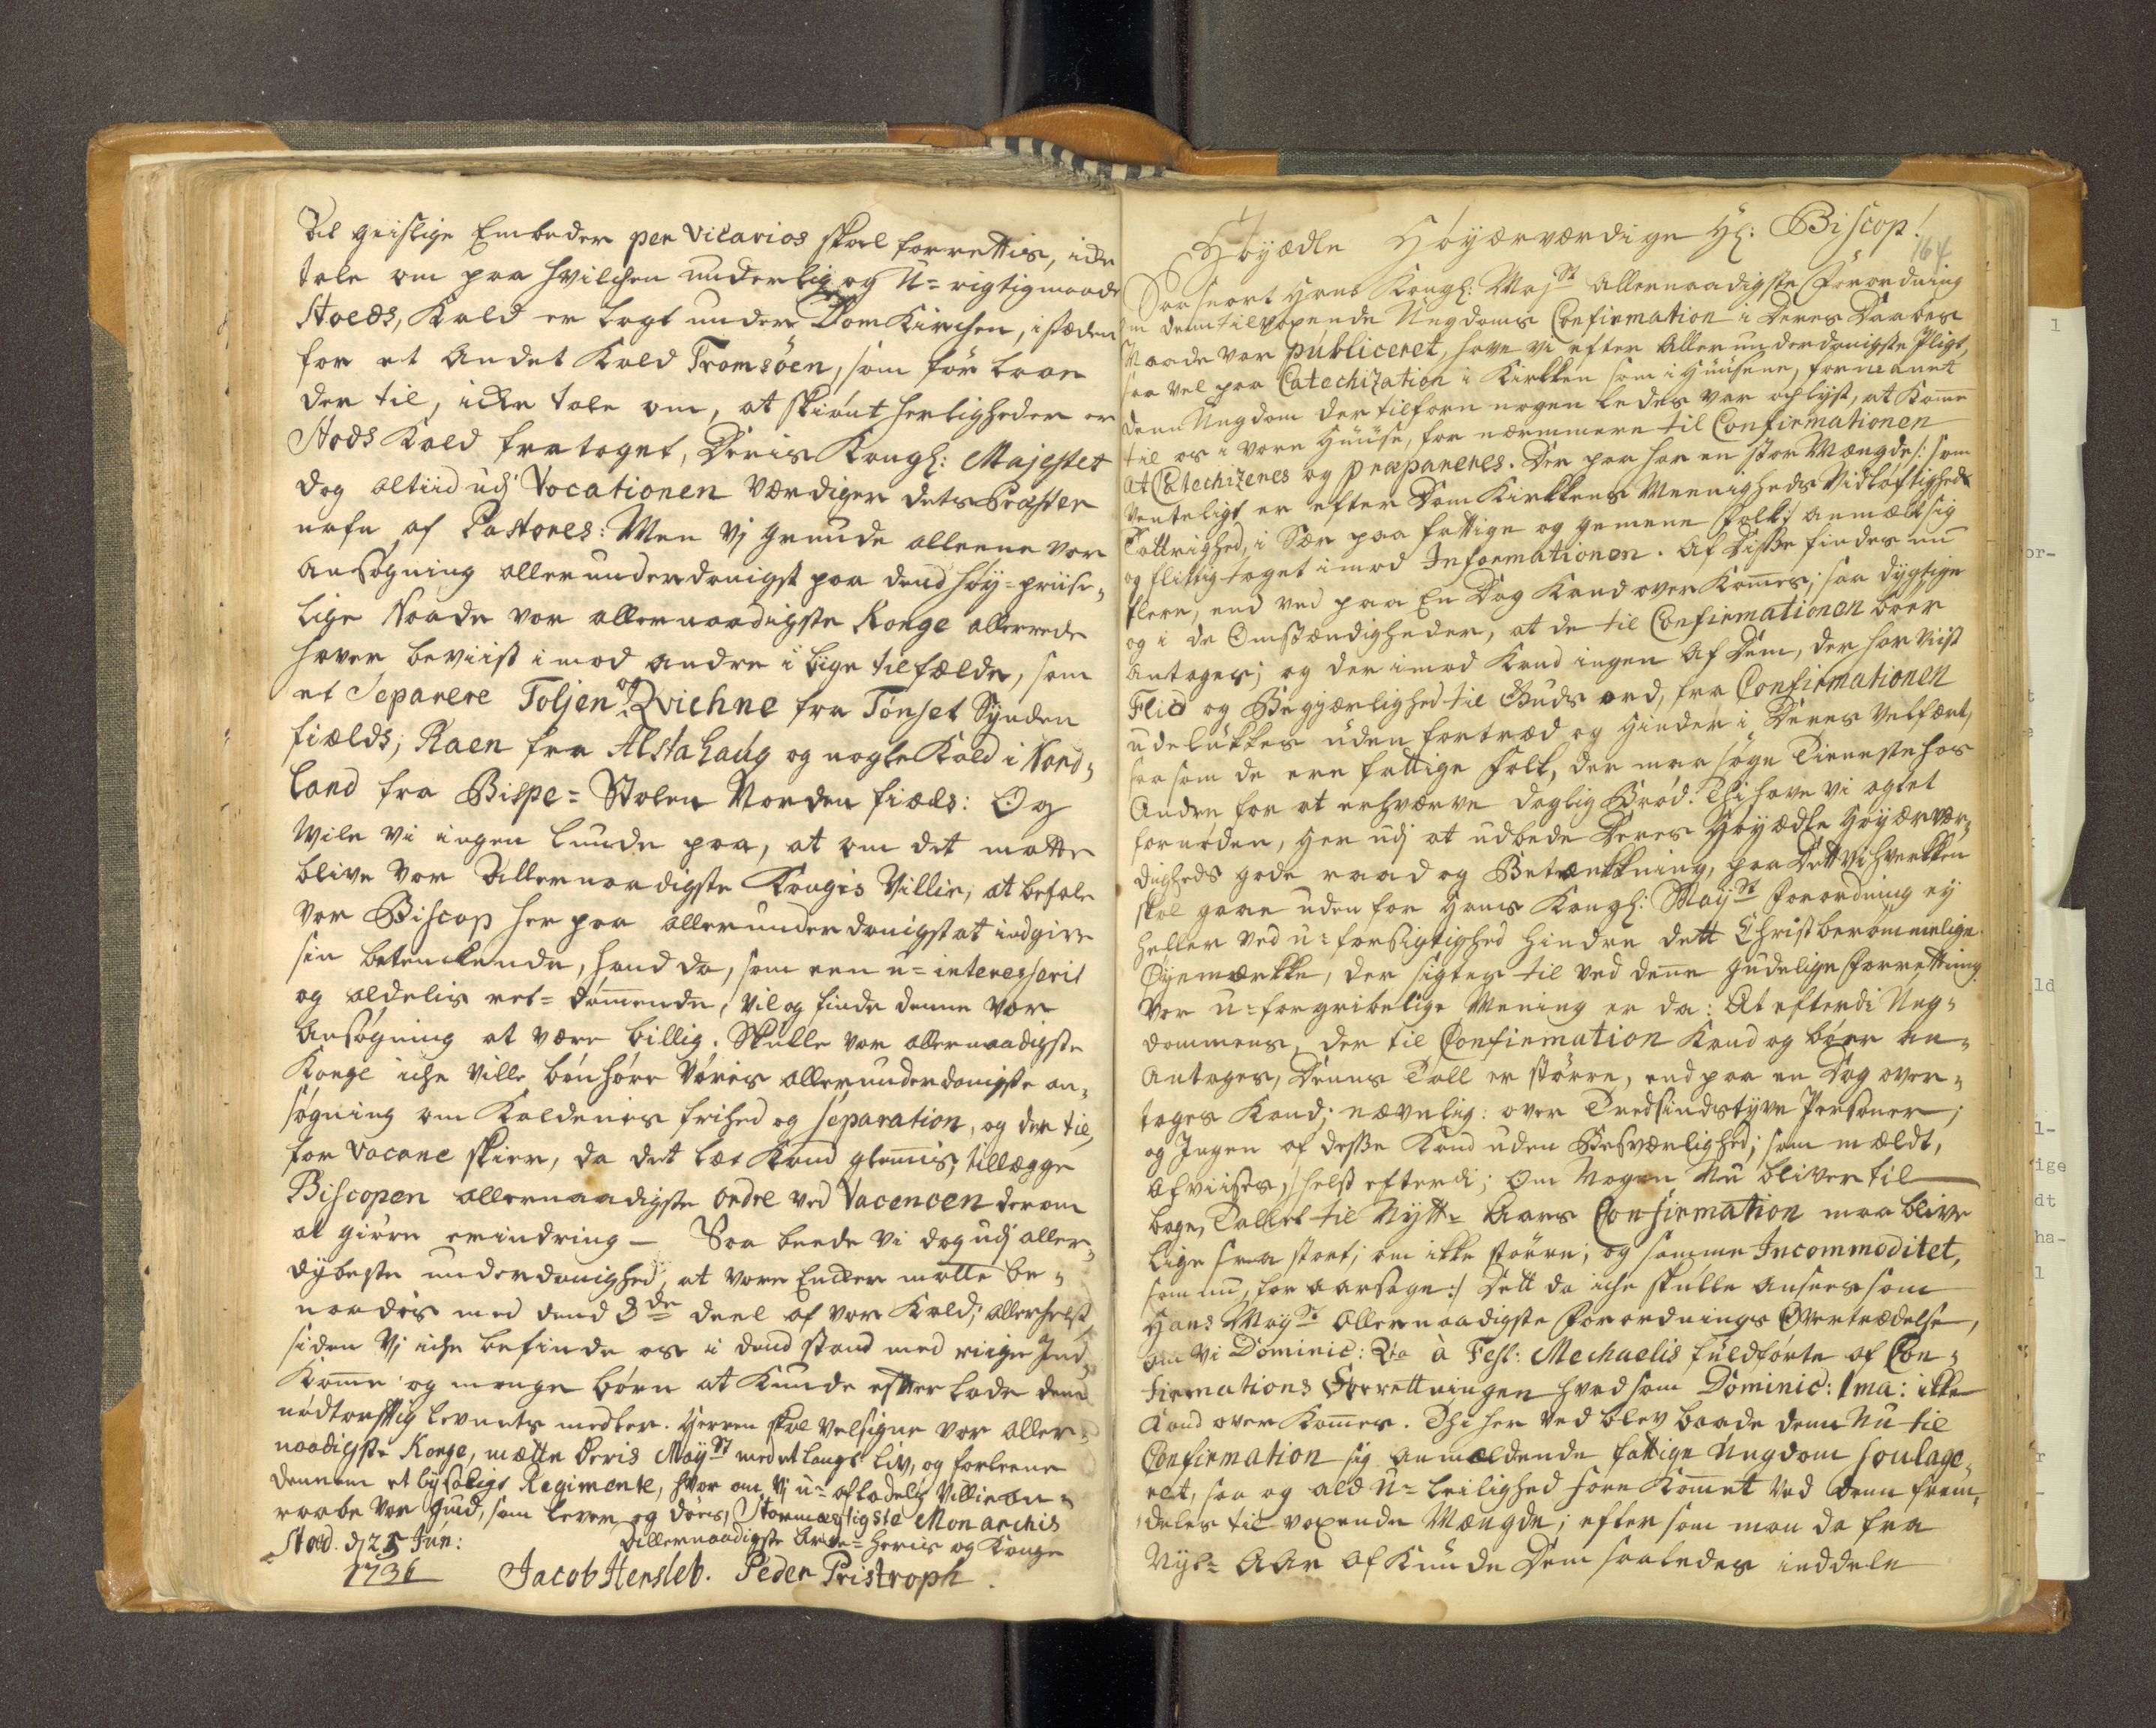 Til geistlige Embeder per vicarios skal forrettis, icke
tale om paa hvilchen underlig og U-rigtig maade
Stoeds, Kald er lagt under Dom Kirchen, i stæden
for et andet Kald Tromsöen, som för laae
der til, icke tale om, at skiönt herligheden er
Stods Kald fratoget, Deris Kongl: Majestet
dog altiid udj Vocationen værdiger dets Præster
nafn af Pastores: Men vj grunde alleene vor
ansögning allerunderdanigst paa dend höy-priise-
lige Naade vor allernaadigste Konge allerrede
haver beviist imod andre i lige tilfælde, som
at Separere Toljen og Qviehne fra Tönset Synden
fields; Raen fra Alstahaug og nogle Kald i Nord-
land fra Bispe-Stolen Norden fields: Og
Wille vi ingen lunde paa, at om det motte
blive vor Allernaadigste Kongis Villie, at befale
vor Biscop her paa allerunderdanigst at indgive
sin betenckende, hand da, som een u-interesserit
og aldelis ret-dömmende, vil og finde denne vor
Ansögning at være billig. Skulle vor allernaadigste
Konge iche ville bönhöre Voris allerunderdanigste an-
sögning om Kaldenis frihed og separation, og der til
for vacance skier, da det let Kand glemis, tillægge
Biscopen allernaadigste ordre ved Vacencen derom
at giöre erindring - Saa beede vi dog udj aller-
dybeste underdanighed, at vore Encker motte be-
naadis med dend 3de deel af vor Kald; allerhelst
siden Vj iche befinde os i dend stand med riige Ind-
Komme og mange börn at Kunde efterlade dem
nödtorftig levnets medler. Herren skal velsigne vor aller-
naadigste Konge, mætte Deris Mayst med et langt Liv, og forleene
dennem et lyksaligt Regimente, hvor om Vj u-afladelig Villie an-
raabe vor Gud, som lever og döer, Stormægtigste Monarchis
Stod. d 25 Jun: Allernaadigste Arve-Herris og Konge
1736 Jacob Hersleb. Peder Pristroph.
Höyædle Höyærværdige Hr: Biscop!
164
Saa snart Hans Kongl: Majst Allernaadigste Forordning
om den tilvoxende Ungdoms Confirmation i Deres Daabes
Naade var publiceret, have vi efter Allerunderdanigste Pligt,
saa vel paa Catechization i Kirkken som i Huusene, formanet
denn Ungdom der tilforn nogen ledes var oplyst, at Komme
til os i vore Huuse, for nærmere til Confirmationen
at Catechizeres og præpareres. Der paa har en stor Mængde /: som
venteligt er efter Dom Kirkkens Meenigheds Vidlöftigheds
Talrighed, i Sær paa fattige og gemeene Folk :/ anmældt sig
og flittig taget imod Informationen. Af Disse findes nu
flere, end ved paa En Dag Kand over Kommes; saa dygtige
og i de Omstændigheder, at de til Confirmationen böer
antages; og der imod Kand ingen af Dem, der har viist
Fliid og Begyærlighed til Guds ord, fra Confirmationen
udelukkes uden fortræd og Hinder i Deres Velfært,
saa som de ere fattige Folk, der maa söge Tieneste hos
Andre for at erhverve daglig Bröd. Thi have vi agtet
fornöden, her udj at udbede Deres Höyædle Höyærvær-
digheds gode raad og Betænkkning, paa Dett Vi hverkken
skal gaae uden for Hans Kongl: Mayst Forordning ey
heller ved u-forsigtighed hindre dett Christberömmelige
Öyemærkke, der sigtes til ved denne gudelige Forrettning
Vor u-forgribelige Mening er da: At efterdi Ung-
dommens, der til Confirmation Kand og böer an-
antages, Dennes Tall er större, end paa en Dag over-
tages Kand; nævnlig: over Tredsindstyve Personer;
og Ingen af desse Kand uden Besværlighed; som meldt,
Afviises, helst efterdi; Om Nogen Nu bliver til
bage, Tallet til Nytt-Aars Confirmation maa blive
lige saa stort; om ikke större; og samme Incommoditet,
som nu, for aarsage:/ Dett da iche skulle ansees som
Hans Mayst Allernaadigste Forordnings Overtrædelse,
om Vi Dominic: 2da à Fest: Mechaelis fuldförte af Con-
firmations Forrettningen hvad som Dominic: 1ma: ikke
Kand over Kommes. Thi her ved blev baade denn Nu til
Confirmation sig anmældende fattige Ungdom soulage-
ret, saa og ald U-leilighed fore Kommet ved denn frem-
deles til voxende Mængde; efter som man da fra
Nyt-Aar af Kunde Dem saaledes inddele